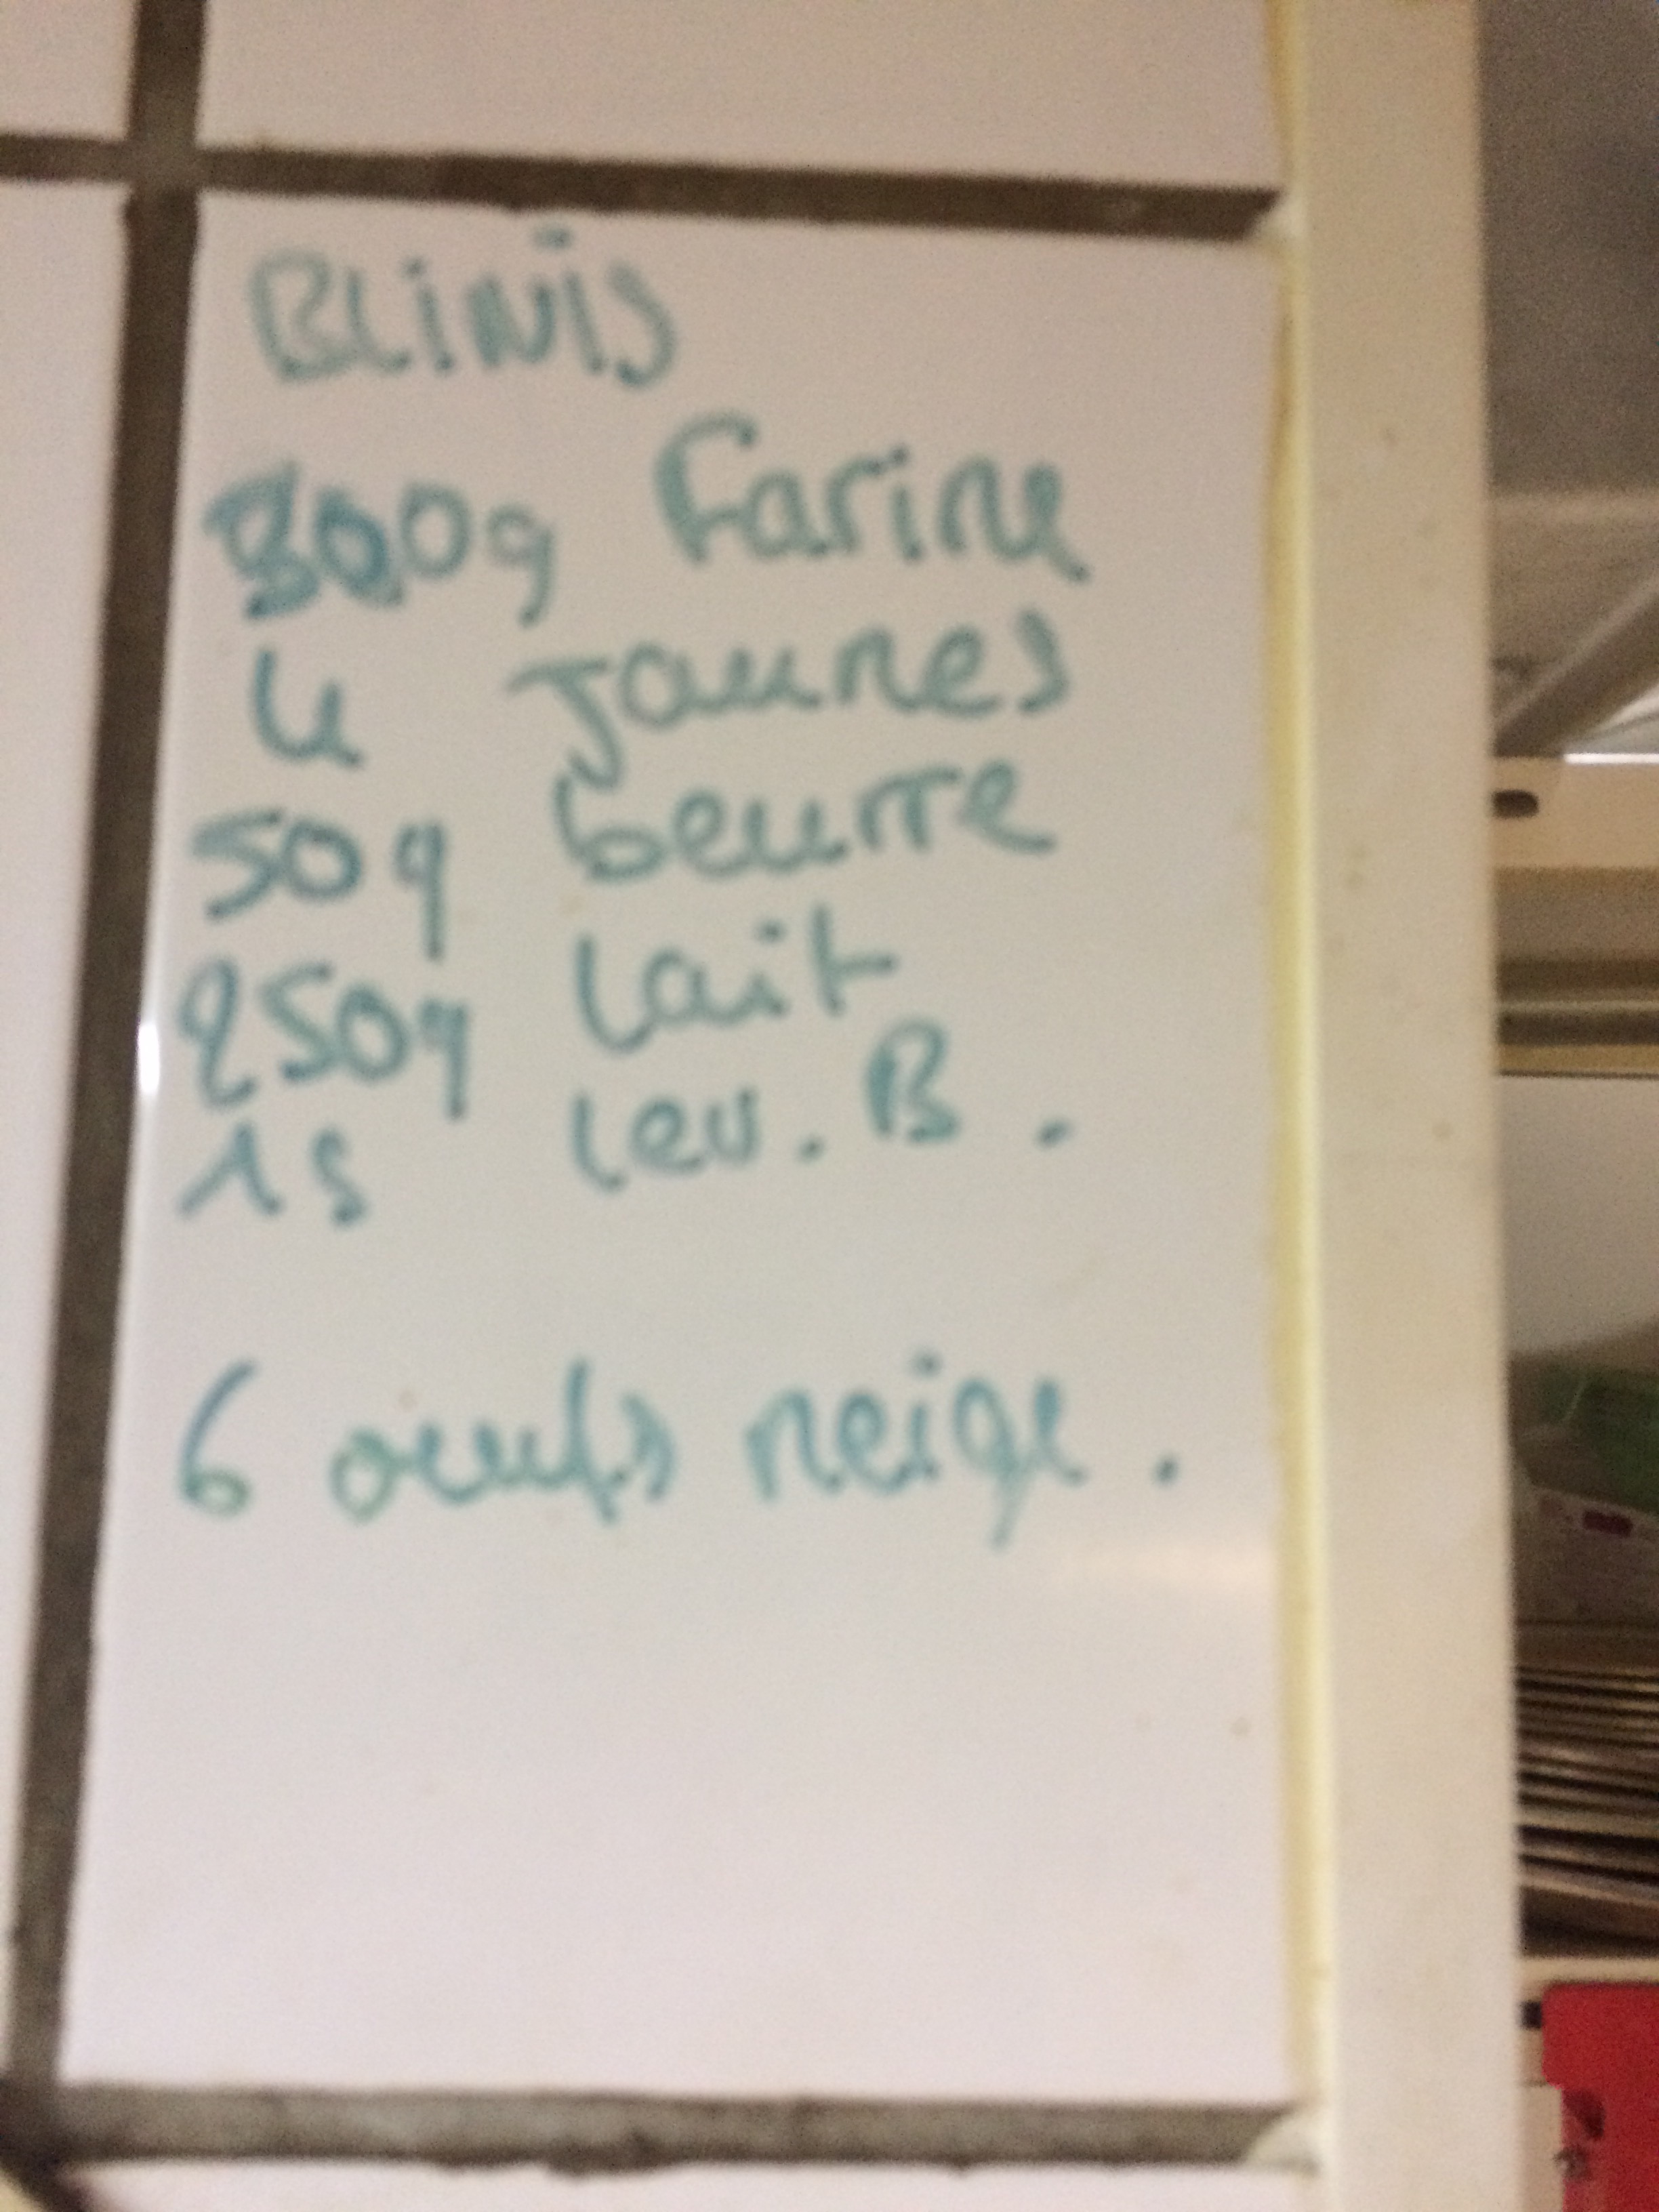 BLiNiS
300g Farine
4 Jaunes
50g beurre
250g Lait
1s lev. B.
6 oeufs neige.